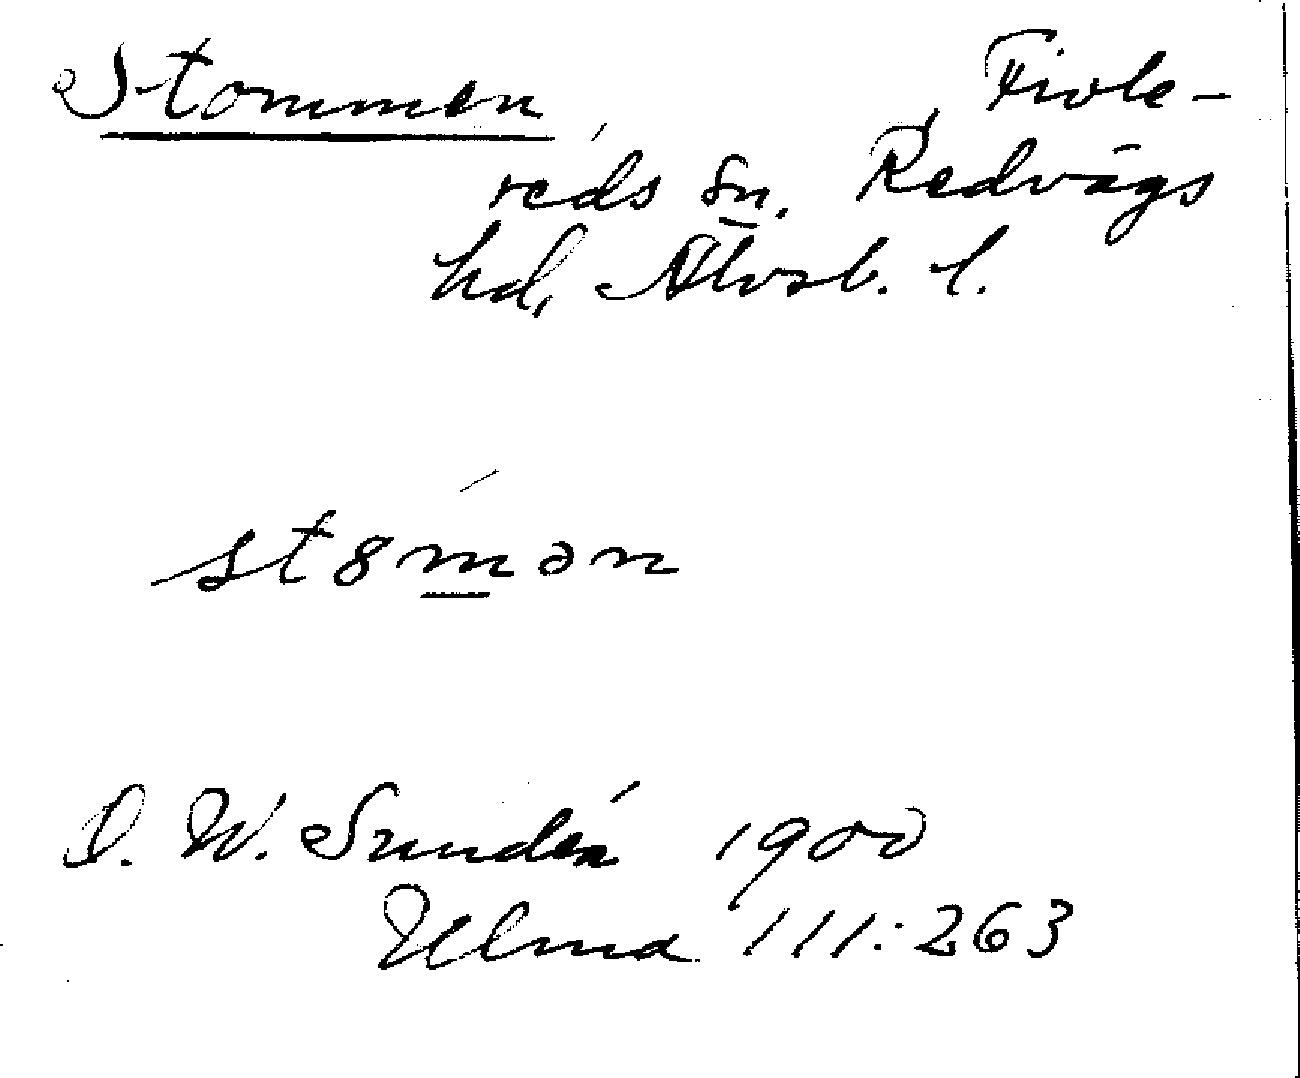 Stommen Fivle-
reds sn. Redvägs
hd, Älvsb. l.
st8mən
D. W. Sundén 1900
Ulma 111:263